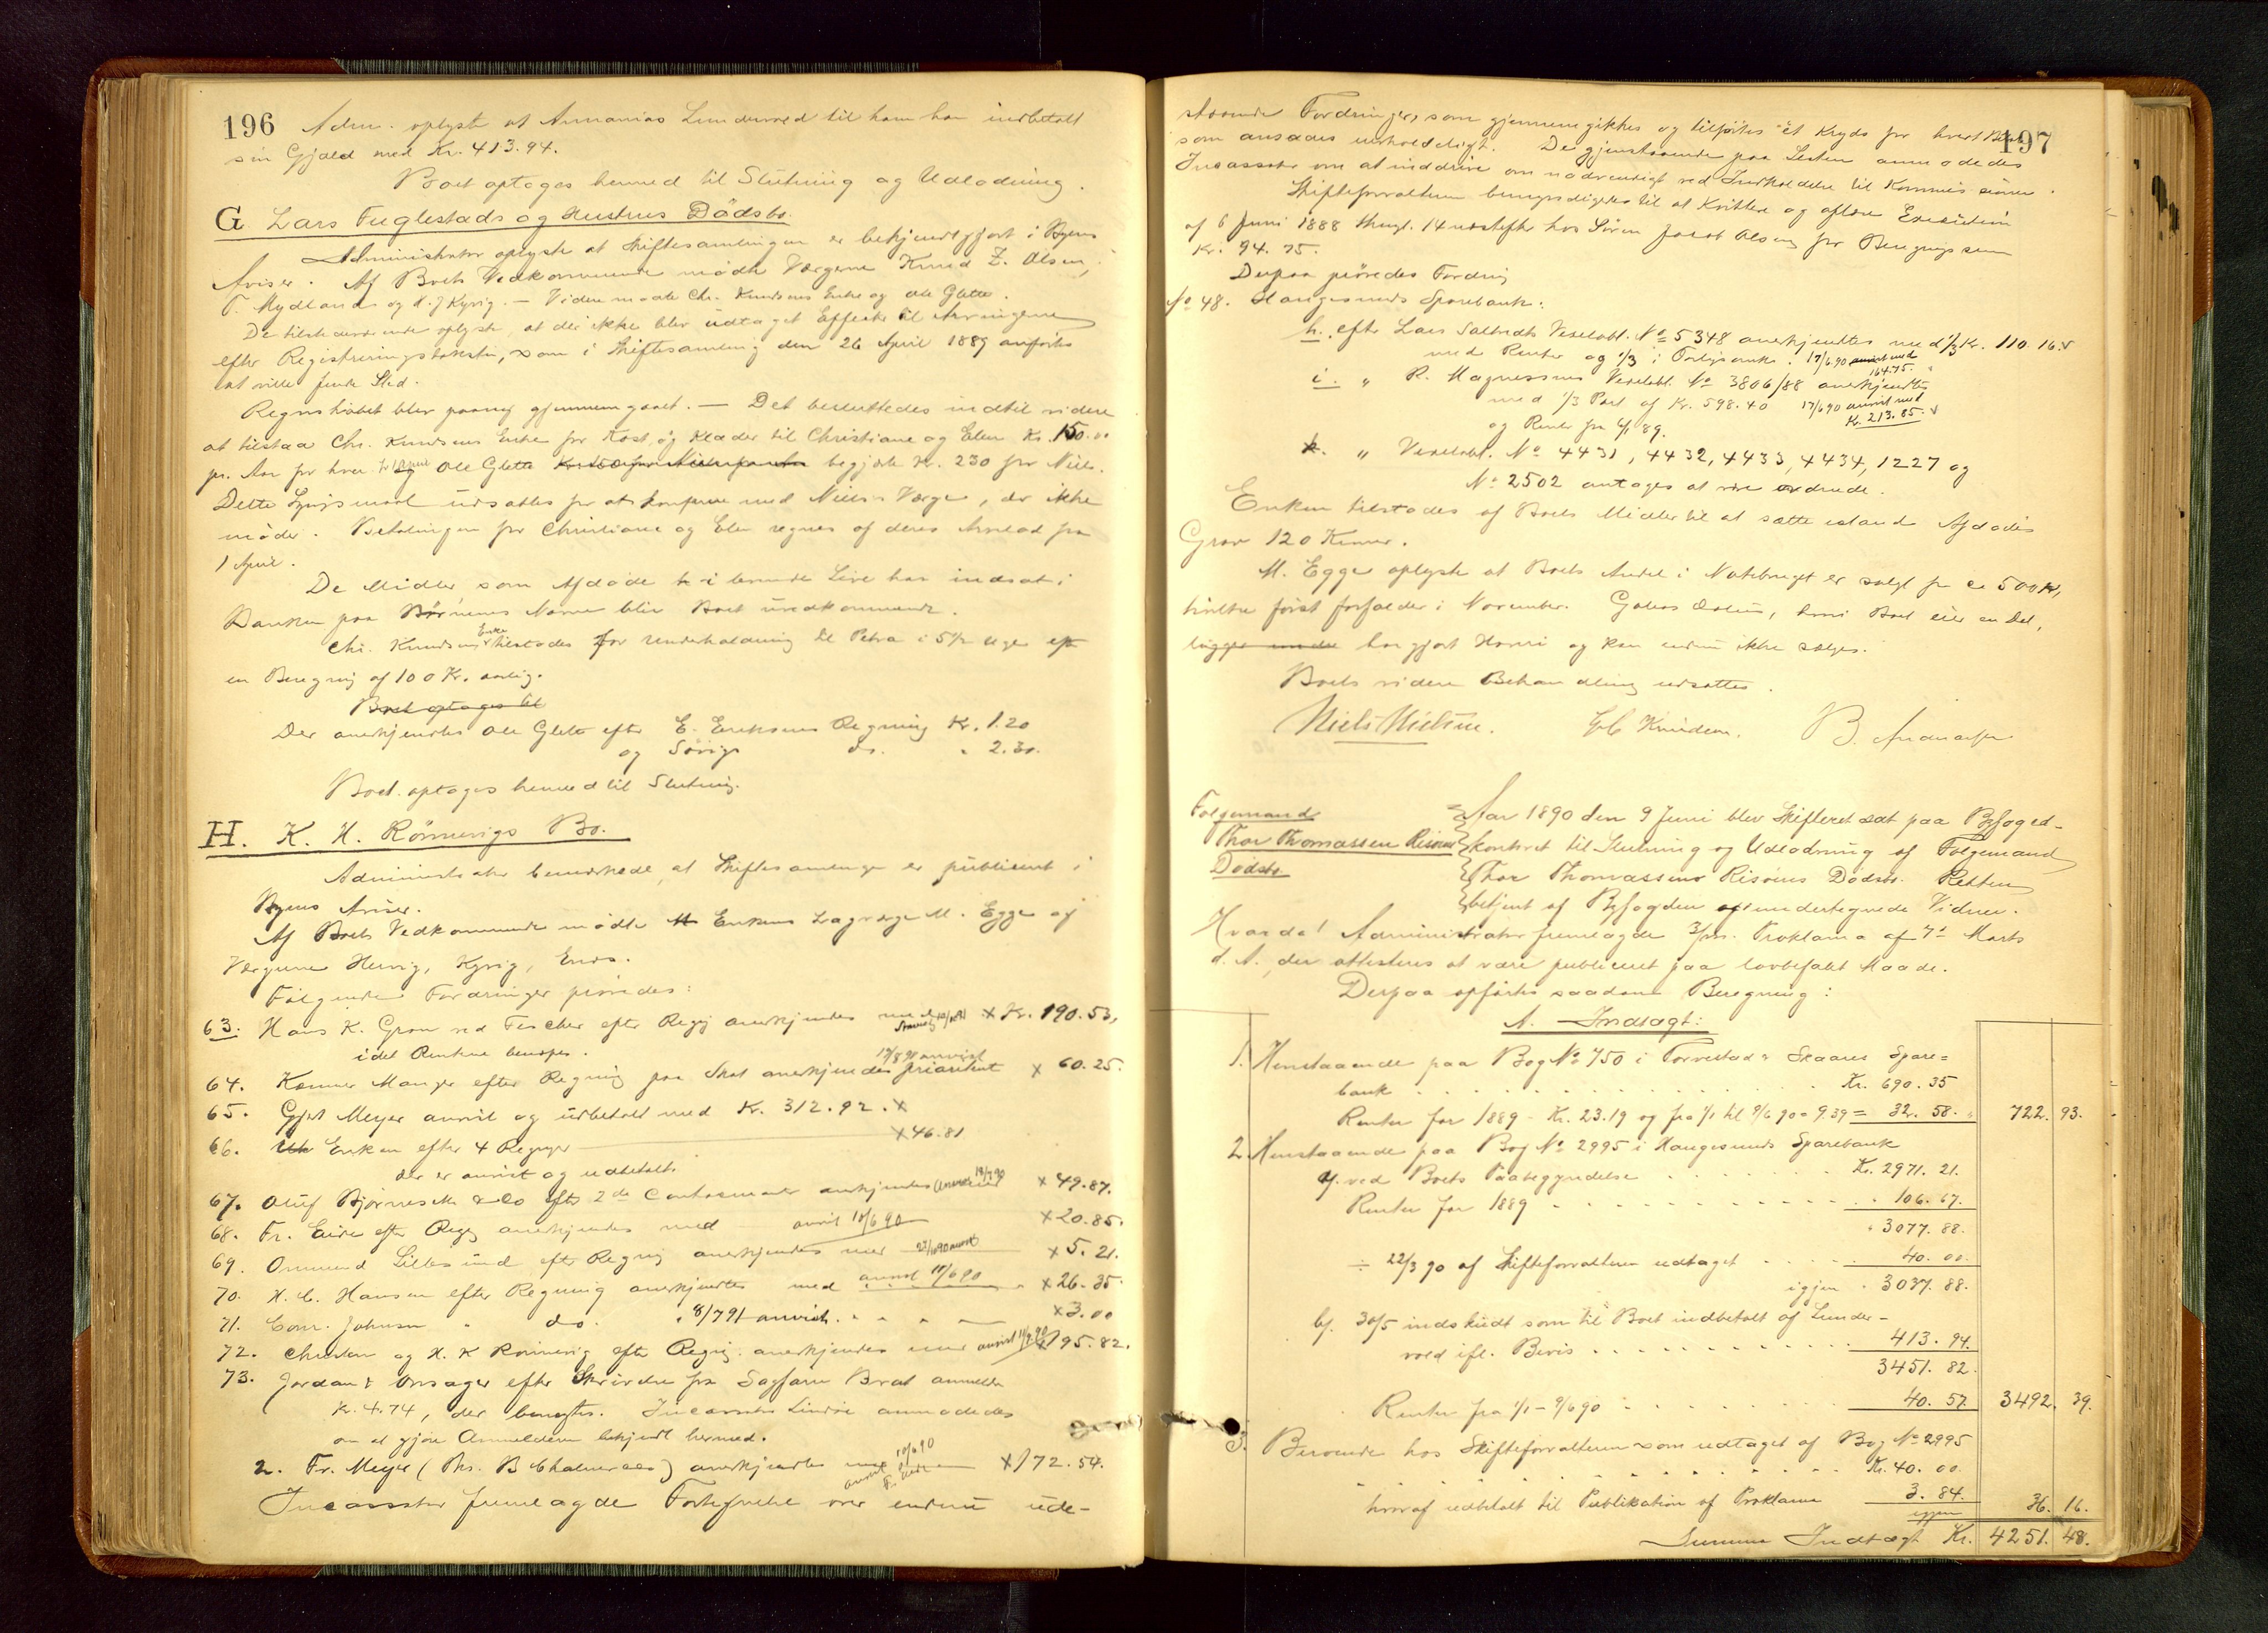 196
Adm. oplyste at Annanias Lundervold til ham har indbetalt
sin Gjæld med Kr. 413.94.
Boet optages hermed til Slutning og Udlodning.
G Lars Fuglestads og Hustrus Dödsbo.
Administrator oplyste at Skiftesamlingen er bekjendtgjort i Byens
Aviser. Af Boets Vedkommende mödte Værgerne Knud Z. Olsen,
T. Mydland og H. J. Kyvig. — Videre mödte Chr. Knudsens Enke og Ole Glette.
De tilstedeværende oplyste, at der ikke blev udtaget Effecter til Arvingerne
efter Registreringstaksten, som i Skiftesamling den 26 April 1889 anförtes
at ville finde Sted.
Regnskabet blev paany gjennemgaaet. — Det besluttedes indtil videre
at tilstaa Chr. Knudsens Enke for Kost og Klæder til Christiane og Elen Kr. 150.00
pr. Aar for hver fr 1 April og Ole Glette begjærte Kr. 230 for Niels.
Dette Spörsmaal udsattes for at konferere med Niels's Værge, der ikke
möder. Betalingen for Christiane og Elen regnes af deres Arvelod fra
1 April.
De Midler, som Afdöde i levende Live har indsat i
Banken paa Börnenes Navne bliv Boet uvedkommende.
Chr. Knudsens Enke tilstodes for Underholdning til Petra i 5½ Uge eft
en Beregning af 100 Kr. aarlig.
Boet optages til
Der anerkjendtes Ole Glette efter E. Eriksens Regning Kr. 1.20
og Sörigs do. " 2.30.
Boet optages hermed til Slutning.
H. K. H. Rönnevigs Bo.
Administrator bemærkede, at Skiftesamlingen er publiceret i
Byens Aviser.
Af Boets Vedkommende mödte Enkens Lagværge M. Egge og
Værgerne Hervig, Kyvig, Ends.
Fölgende Fordringer prövedes:
63. Hans K. Gron ved Fischer efter Regng anerkjendes med x Kr. 190.53,
idet Renterne benegtes.
64. Kæmner Mange efter Regning paa Skat anerkjendes prioriteret x 60.25.
65. Gjert Meyer anvist og udbetalt med Kr. 312.92. x
66. Enken efter 4 Regnger x 46.81
der er anvist og udbetalt.
67. Oluf Bjørnseth & Co efter 2de Contocouranter anerkjendes x 49.87.
68. Fr. Eide efter Regng anerkjendes med anvist 10/6 90 x 20.85.
69. Ommund Lillesund eft Regning anerkjendes med x 5.21.
70. H. C. Hansen efter Regning anerkjendtes med anvist 11/6 90 x 26.35
71. Conr. Johnsen " do. " 8/7 91 anvist. x 3.00
72. Christian og H. K Rönnevig efter Regng. anerkjendes med x 195.82.
73. Jordan & Onsager efter Skrivelse fra Sagförer Brat anmeldte
Kr. 4.74, der benegtes. Incassator Lindöe anmodedes
om at gjöre Anmelderen bekjendt hermed.
2. Fr. Meyer (Ths. B Chalmers) anerkjendtes med anvist 10/6 90 x 172.54.
Incassator fremlagde Fortegnelse over endnu ude-
197
staaende Fordringer, som gjennemgikkes og tilförtes et Kryds for hvert Belöb
som ansaaes uerholdeligt. De gjenstaaende paa Listen anmodedes
Incassator om at inddrive om nødvendigt ved Indkaldelse til Kommissionen.
Skifteforvalteren bemyndigedes til at Kvittere og aflæse Execution
af 6 Juni 1888 thingl. 14 næstefter hos Sören Jacob Olsen for Beregningssum
Kr. 94.75.
Derpaa prövedes Fordring
No 48. Haugesunds Sparebank:
h. efter Lars Salteds Vexelobl. No 5348 anerkjendtes med ⅓ Kr. 110.16. v
med Renter og ⅓ i Forligsomk. 17/6.90 anvist med
164.75.
i. " R. Magnessens Vexelobl. No 3806/88 anerkjendtes
med ⅓ Part af Kr. 598.40 17/6 90 anvist med
og Renter fra 4/1 89. Kr. 213.85. v
k. " Vexelobl. No 4431, 4432, 4433, 4434, 1227 og
No 2502 antages at være ordnede.
Enken tilstodes af Boets Midler til at sætte istand Afdödes
Grav 120 Kroner.
M. Egge oplyste at Boets Andel i Notebruget er solgt for ca 500 Kr,
hvilke först forfalder i November. Galeas Dolus, hvori Boet eier en Del,
ligger under har gjort Havari og kan endnu ikke sælges.
Boets videre Behandling udsattes.
Niels Nielsen. Gab Knudsen. B. Andreassen
Følgemand
Thor Thomassen Risöens
Dødsbo.
Aar 1890 den 9 Juni blev Skifteret sat paa Byfoged-
kontoret til Slutning og Udlodning af Følgemand
Thor Thomassens Risöens Dødsbo. Retten
betjent af Byfogden og undertegnede Vidner.
Hvorda! Administrator fremlagde 3/ms. Proklama af 7de Marts
d. A., der attesteres at være publiceret paa lovbefalet Maade.
Derpaa opförtes saadan Beregning:
A. Indtægt:
1. Henstaaende paa Bog No 750 i Torvestad & Skaare Spare=
bank . . . Kr. 690.35
Renter for 1889 - Kr. 23.19 og fra 1/1 til 9/6 90 = 9.39 = 32.58. 722. 93.
2. Henstaaende paa Bog No 2995 i Haugesunds Sparebank
a/. ved Boets Paabegyndelse . . . Kr. 2971.21.
Renter for 1889 . . . " 106.67.
" 3077.88.
÷ 22/3 90 af Skifteforvalteren udtaget . . . 40.00.
igjen " 3037.88.
b/. 30/5 indskudt som til Boet indbetalt af Lunder-
vold ifl. Bevis . . . 413.94.
3451.82.
Renter fra 1/1 - 9/6 90 . . . 40.57. 3492. 39.
3. Beroende hos Skifteforvalteren som udtaget af Bog No 2995
Kr. 40.00.
hvoraf udbetalt til Publikation af Proklama 3.84.
igjen 36. 16.
Summa Indtægt Kr. 4251. 48.